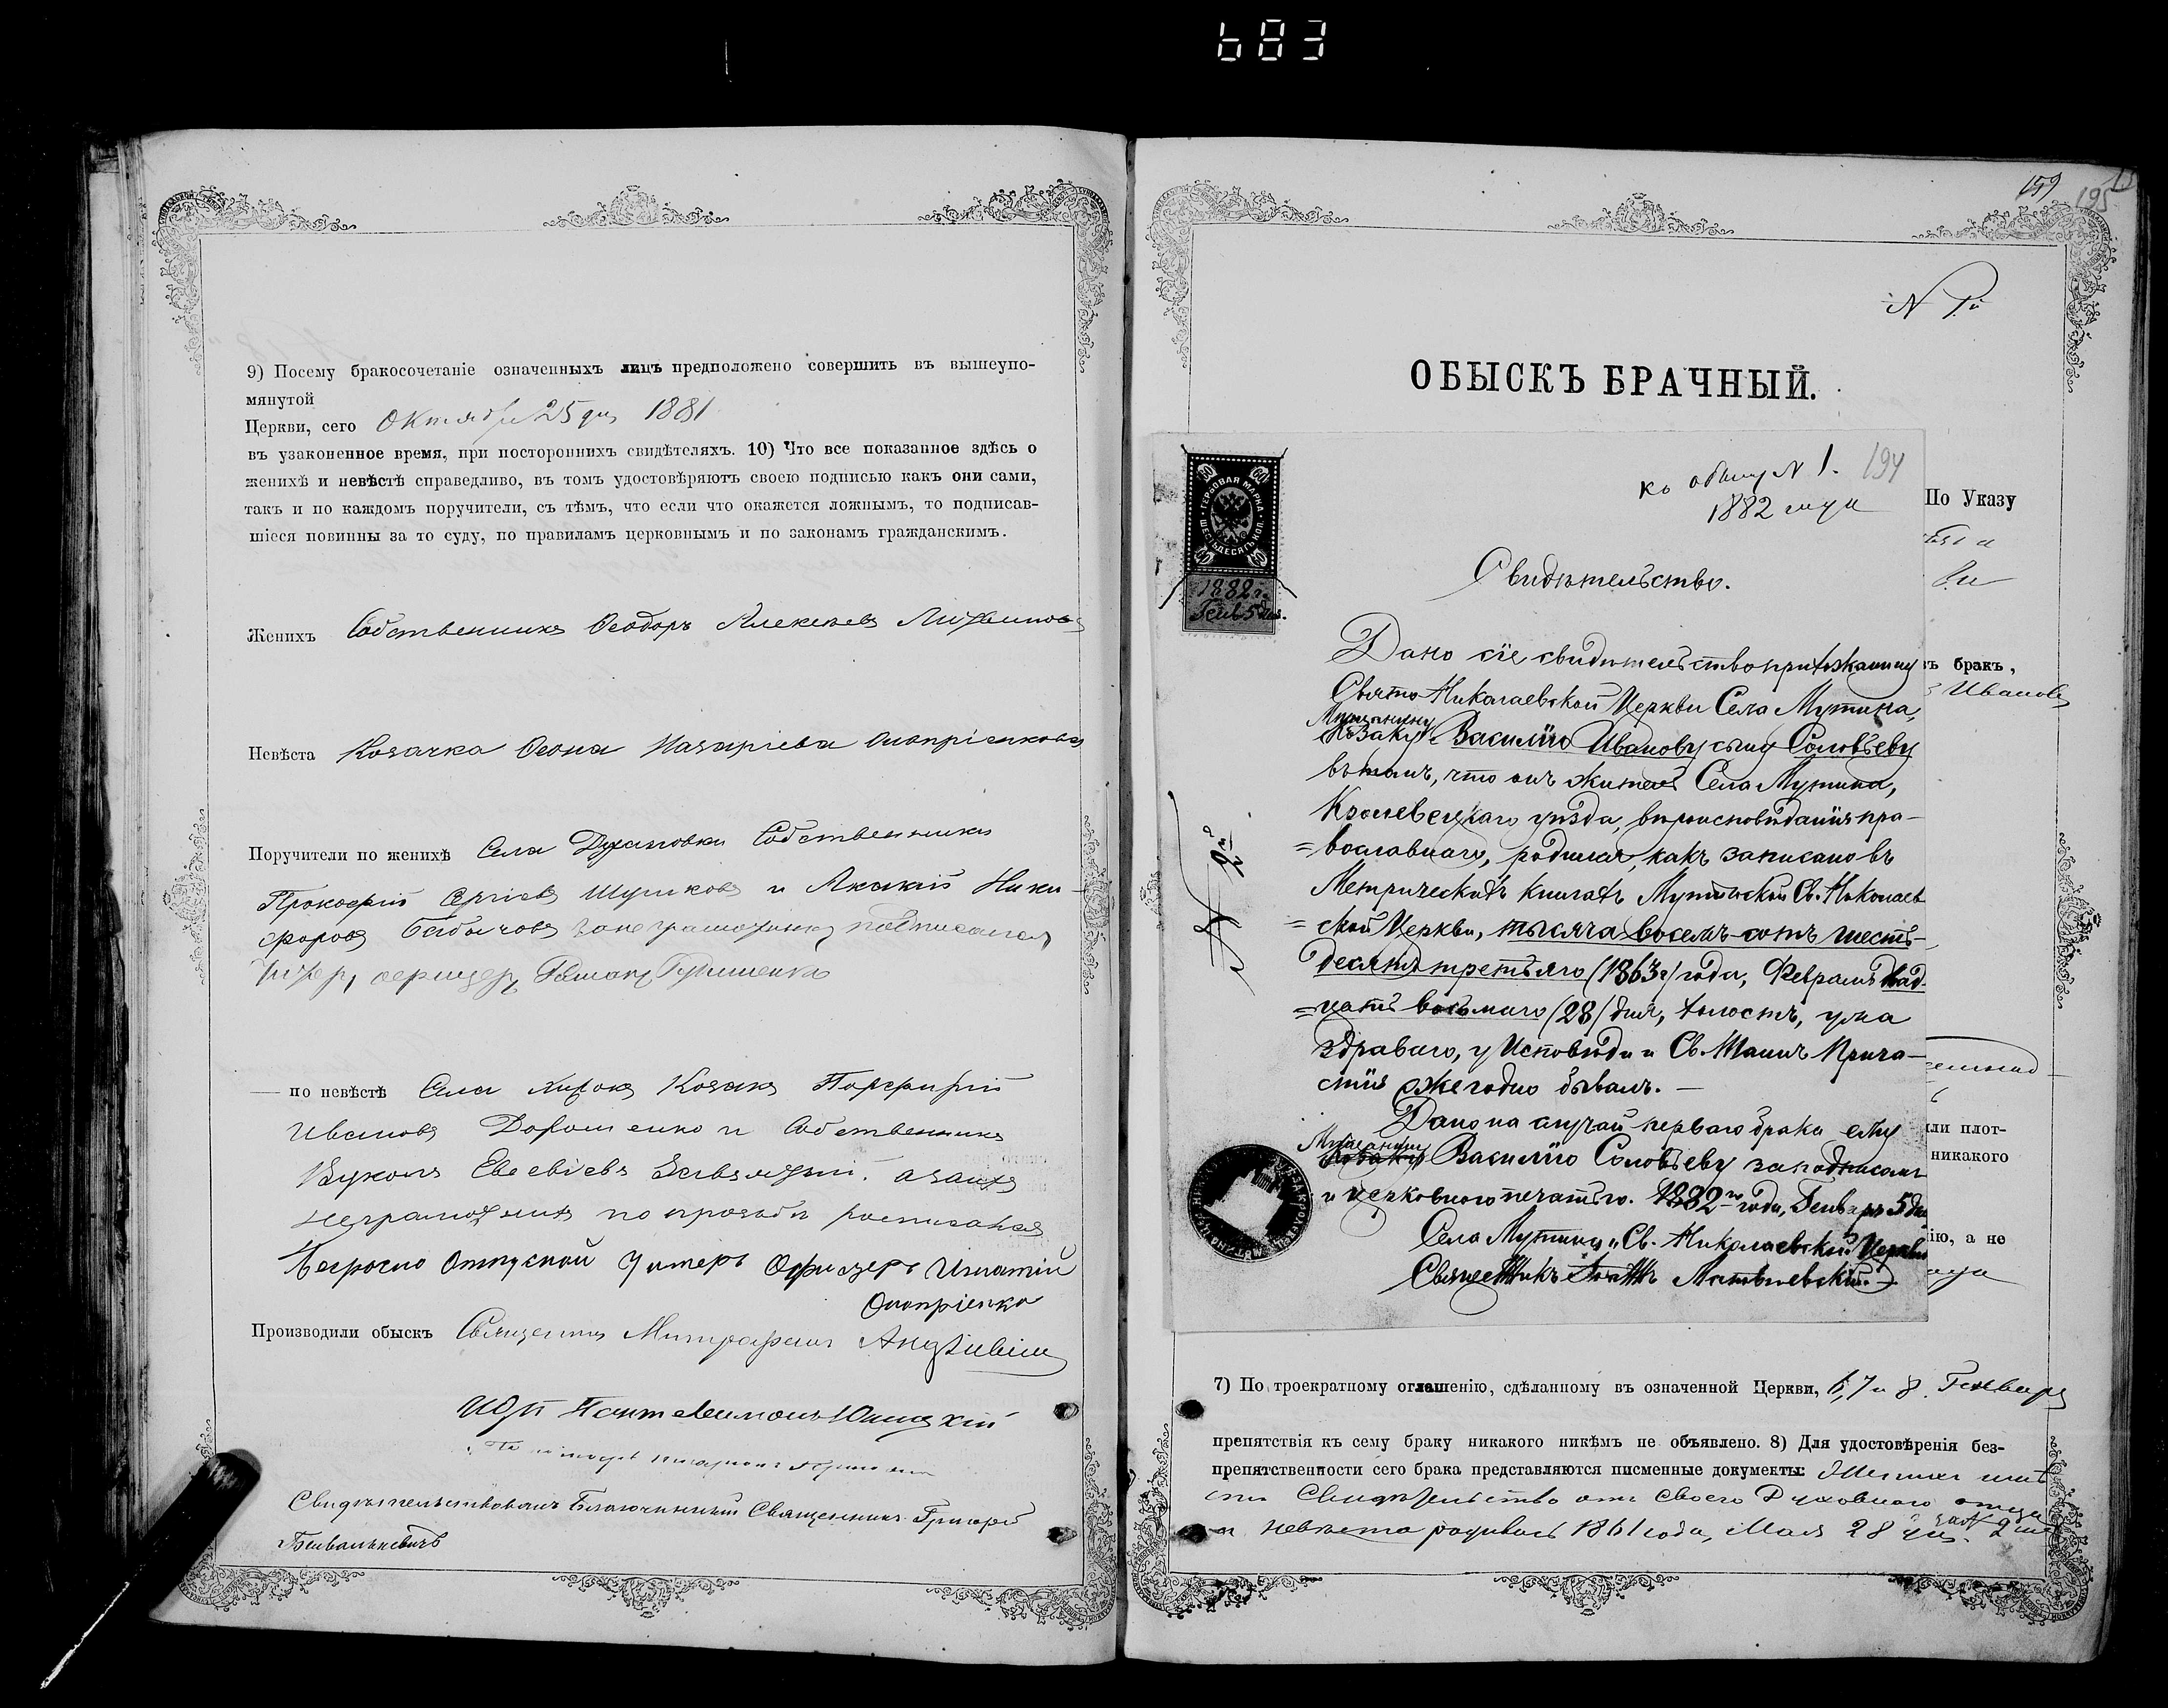 683
9) Посему бракосочетаніе означенныхъ лицъ предположено совершить въ вышеупо-
мянутой
Церкви, сего Октября 25 дня 1881
въ узаконенное время, при постороннихъ свидѣтеляхъ. 10) Что все показанное здѣсь о
женихѣ и невѣстѣ справедливо, въ томъ удостовѣряютъ своею подписью какъ они сами,
такъ и по каждомъ поручители, съ тѣмъ, что если что окажется ложнымъ, то подписав-
шіеся повинны за то суду, по правиламъ церковнымъ и по законамъ гражданскимъ.
Женихъ Собственникъ Ѳеодоръ Алексѣевъ
Невѣста Козачка Назаріева Оноприенкова
Поручители по женихѣ Села Собственники
Прокофій Сергіевъ и Акакій Ники-
форовъ подписался
Унтеръ офицеръ Романъ
— по невѣстѣ Села Козакъ Порфирій
Ивановъ Дорошенко и Собственникъ
Вуколъ Евсевіевъ а за нихъ
неграмотныхъ по прозьбѣ росписался
Безсрочно Отпускной Унтеръ Офицеръ Игнатій
Оноприенко
Производили обыскъ Священникъ Митрофанъ
Пантелеимонъ
Свидѣтельствовалъ Благочинный Священникъ Григорій
159
195
N 1й
ОБЫСКЪ БРАЧНЫЙ.
къ обыску N 1. 194
1882 года
По Указу
ГЕРБОВАЯ МАРКА
ШЕСТЬДЕСЯТЪ КОП.
60
1882 г.
Генв 5 дня.
Свидѣтельство.
Дано сіе свидѣтельство прихожанину
Свято Николаевской Церкви Села Мутина,
Мѣщанину
Козаку Василію Иванову сыну Соловьеву
въ томъ, что онъ житель Села Мутина,
Кролевецкаго уѣзда, вѣроисповѣданія пра-
=вославнаго, родился, какъ записано въ
Метрическихъ книгахъ Мутинской Св. Николаев
=ской Церкви, тысяча восемь-сотъ шесть-
десятъ третьяго (1863 г) года, Февраля двад-
=цать восьмаго (28) дня, холостъ, ума
здраваго, у Исповѣди и Св. Таинъ Прича-
стія ежегодно бывалъ. —
Дано на случай перваго брака ему
Мѣщанину
Козаку Василію Соловьеву за подписомъ
и церковною печатью. 1882 го года, Генваря 5 дня
Села Мутина, Св. Николаевской Церкви
Священникъ Матвіевскій
N 2й
въ бракъ,
Ивановъ
или плот-
никакого
ію, а не
7) По троекратному оглашенію, сдѣланному въ означенной Церкви, 6, 7 и 8 Генваря
препятствія къ сему браку никакого никѣмъ не объявлено. 8) Для удостовѣренія без-
препятственности сего брака представляются писменные документы:
Свидѣтельство отъ своего Духовнаго отца
за N 2
а невѣста родилась 1861 года, Мая 28 дня.